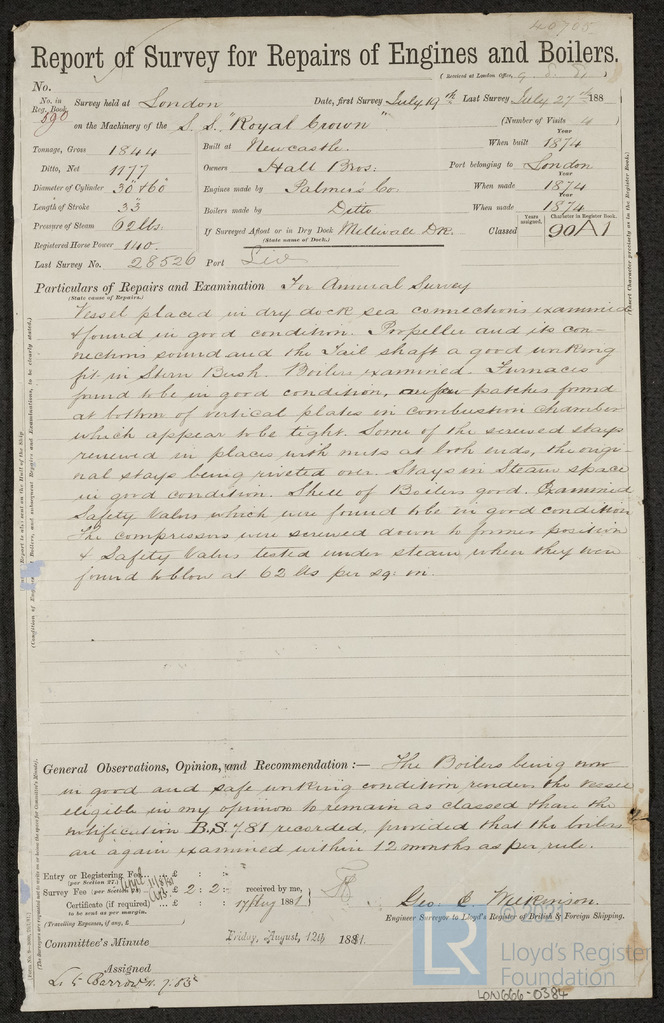 40705
Report of Survey for Repairs of Engines and Boilers.
(Received at London Office, 9. 8. 81)
No.
No. in Reg. Book 590 Survey held at London Date, first Survey July 19th Last Survey July 27th 188
on the Machinery of the S.S. "Royal Crown" (Number of Visits 4)
Tonnage, Gross 1844 Built at Newcastle. When built Year 1874
Ditto, Net 1177 Owners Hall Bros: Port belonging to London
Diameter of Cylinder 30" & 60" Engines made by Palmers Co. When made Year 1874
Length of Stroke 33 Boilers made by Ditto When made Year 1874
Pressure of Steam 62 lbs. If Surveyed Afloat or in Dry Dock Millwall Dk. Classed Years assigned. Character in Register Book. 90A1
(State name of Dock.)
Registered Horse Power 140.
Last Survey No. 28526 Port Liv
Particulars of Repairs and Examination For Annual Survey
(State cause of Repairs.)
Vessel placed in dry dock sea connections examined
& found in good condition. Propeller and its con-
nections sound and the Tail shaft a good working
fit in Stern Bush. Boilers examined. Furnaces
found to be in good condition, a few patches found
at bottom of vertical plates in combustion chamber
which appear to be tight. Some of the screwed stays
renewed in places with nuts at both ends, the origi-
nal stays being riveted over. Stays in Steam space
in good condition. Shell of Boilers good. Examined
Safety Valves which were found to be in good condition
The compressors were screwed down to former position
& Safety Valves tested under steam when they were
found to blow at 62 lbs per sq: in.
General Observations, Opinion, and Recommendation:— The Boilers being now
in good and safe working condition renders the vessel
eligible in my opinion to remain as classed & have the
notification B.S. 7.81 recorded, provided that the boilers
are again examined within 12 months as per rule.
Entry or Registering Fee... £ : :
(per Section 27.)
Survey Fee (per Section £ 2 : 2 : received by me,
Certificate (if required) £ : : 17 Aug 1881
to be sent as per margin.
(Travelling Expenses, if any, £ )
Geo. C. Wilkinson.
Engineer Surveyor to Lloyd's Register of British & Foreign Shipping.
Committee's Minute Friday, August, 12th 1881.
Assigned
© 2021
LR
Lloyd's Register
Foundation
LON666-0384